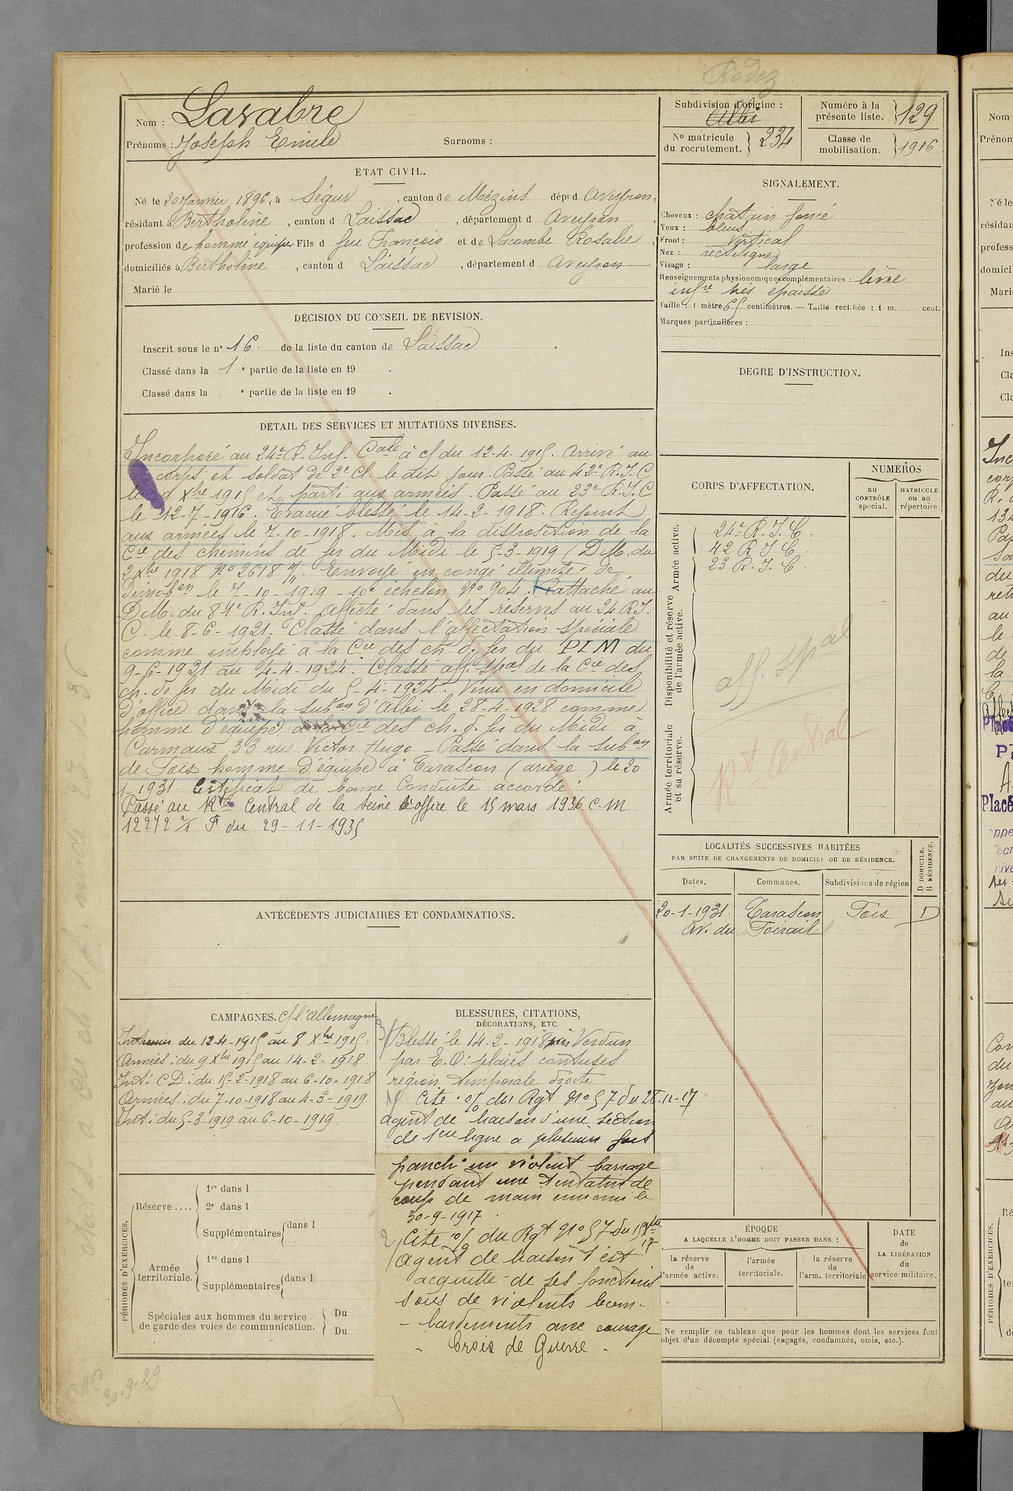 Rodez
Nom : Lavabre
Prénoms : Joseph Emile
Surnoms :
Subdivision d'origine :
Albi
Numéro à la présente liste. 129
No matricule du recrutement. 234
Classe de mobilisation. 1916
ÉTAT CIVIL.
Né le 20 Janvier 1896, à Ségur, canton de Vézins dépt d Aveyron,
résidant à Bertholène, canton d Laissac, département d Aveyron,
profession de homme équipe Fils d feu François et de Lacombe Rosalie,
domiciliés à Bertholène, canton d Laissac, département d Aveyron
Marié le
SIGNALEMENT.
Cheveux : chatain foncé
Yeux : bleus
Front : vertical
Nez : rectiligne
Visage : large
Renseignements physionomiques complémentaires : lèvre
infre très épaisse
Taille : 1 mètre 65 centimètres. — Taille rectifiée : 1 m. cent.
Marques particulières :
DÉCISION DU CONSEIL DE REVISION.
Inscrit sous le n° 16 de la liste du canton de Laissac
Classé dans la 1e partie de la liste en 19 .
Classé dans la e partie de la liste en 19 .
DEGRÉ D'INSTRUCTION.
DÉTAIL DES SERVICES ET MUTATIONS DIVERSES.
Incorporé au 24e R. Inf. Cale à c/ du 12-4-1915. Arrivé au
corps et soldat de 2e cl le dit jour. Passé au 42e R.I.C
le 9 Xbre 1915 et parti aux armées. Passé au 23e R.I.C
le 12-7-1916. Evacué blessé le 14-2-1918. Rejoint
aux armées le 7-10-1918. Mis à la disposition de la
Cie des chemins de fer du Midi le 5-3-1919 (D.M. du
2 Xbre 1918 No 2618 Envoyé en congé illimité de
démobon le 7-10-1919 - 10e échelon No 904. Rattaché au
D.M. du 81e R. Inf. Affecté dans les réserves au 24 R.I.
C. le 8-6-1921. Classé dans l'affectation spéciale
comme employé à la Cie des ch. d. fer du PLM du
9-6-1921 au 4-4-1924. Classé aff. spal de la Cie des
ch. de fer du Midi du 5-4-1924. Venu en domicile
d'office dans la subon d'Albi le 28-4-1928 comme
homme d'équipe à la Cie des ch. d. fer du Midi à
Carmaux 33 rue Victor Hugo - Passé dans la subon
de Foix homme d'équipe à Tarascon (ariège) le 20
1-1931 Certificat de bonne Conduite accordé
Passé au Rt Central de la Seine d'office le 15 mars 1936 C.M
12272 du 29-11-1935
CORPS D'AFFECTATION.
NUMÉROS
au CONTRÔLE spécial.
MATRICULE ou au répertoire
Armée active.
24e R.I.C.
42 R I C.
23 R.I.C.
Disponibilité et réserve de l'armée active.
aff. spal
Armée territoriale et sa réserve.
Rt Central
LOCALITÉS SUCCESSIVES HABITÉES
PAR SUITE DE CHANGEMENTS DE DOMICILE OU DE RÉSIDENCE.
Dates.
Communes.
Subdivisions de région
D DOMICILE. R RÉSIDENCE.
20-1-1931 Tarascon Foix D
Av. du Foirail
ANTÉCÉDENTS JUDICIAIRES ET CONDAMNATIONS.
CAMPAGNES. c/ l'Allemagne
Intérieur du 12-4-1915 au 8 Xbre 1915.
Armées : du 9 Xbre 1915 au 14-2-1918
Int : C D : du 15-2-1918 au 6-10-1918
Armées : du 7-10-1918 au 4-3-1919
Int : du 5-3-1919 au 6-10-1919
BLESSURES, CITATIONS,
DÉCORATIONS, ETC.
Blessé le 14-2-1918 près Verdun
par E.O. plaies contuses
région temporale droite
1/ Cité o/ du Rgt No 57 du 28-11-17
agent de liaison d'une section
de 1ère ligne a plusieurs fois
franchi un violent barrage
pendant une tentative de
coup de main ennemi le
30-9-1917.
2/ Cité o/ du Rgt No 57 du
Agent de liaison s'est
acquitté de ses fonctions
sous de violents bom-
- bardements avec courage
- Croix de Guerre -
PÉRIODES D'EXERCICES.
Réserve ....
1re dans l
2e dans l
Supplémentaires dans l
Armée territoriale.
1re dans l
Supplémentaires dans l
Spéciales aux hommes du service de garde des voies de communication.
Du
Du
ÉPOQUE
A LAQUELLE L'HOMME DOIT PASSER DANS :
la réserve de l'armée active.
l'armée territoriale.
la réserve de l'arm. territoriale
DATE de LA LIBÉRATION du service militaire.
Ne remplir ce tableau que pour les hommes dont les services font
l'objet d'un décompte spécial (engagés, condamnés, omis, etc.).
30-9-29